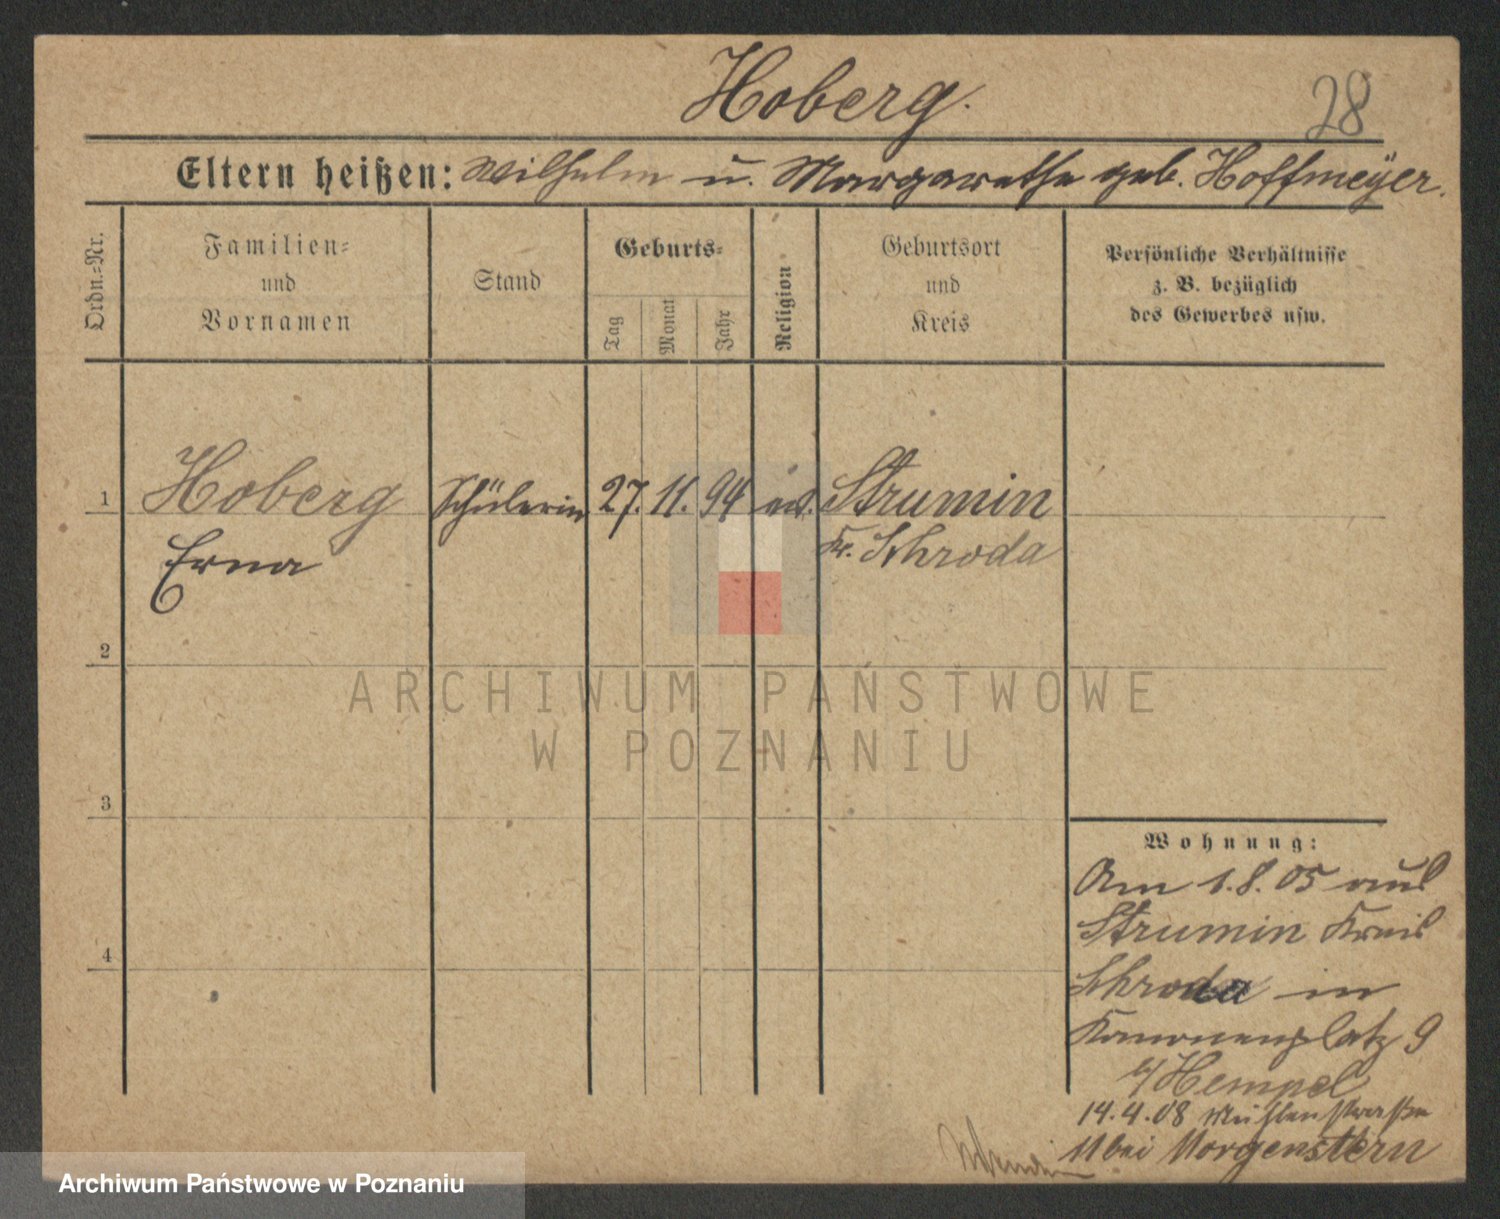 Hoberg.
28
Eltern heißen: Wilhelm u. Margarethe geb. Hoffmeÿer.
Ordn.=Nr.
Familien=
und
Vornamen
Stand
Geburts=
Tag
Monat
Jahr
Religion
Geburtsort
und
Kreis
Persönliche Verhältnisse
z. B. bezüglich
des Gewerbes usw.
1 Hoberg Schülerin 27. 11. 94 ev. Strumin
Erna Kr. Schroda
2
ARCHIWUM PAŃSTWOWE
W POZNANIU
3
Wohnung:
Am 1.8.05 aus
Strumin Kreis
4
Schroda in
Kanonenplatz 9
b/Hempel
14.4.08 Mühlenstraße
11 bei Morgenstern
Archiwum Państwowe w Poznaniu